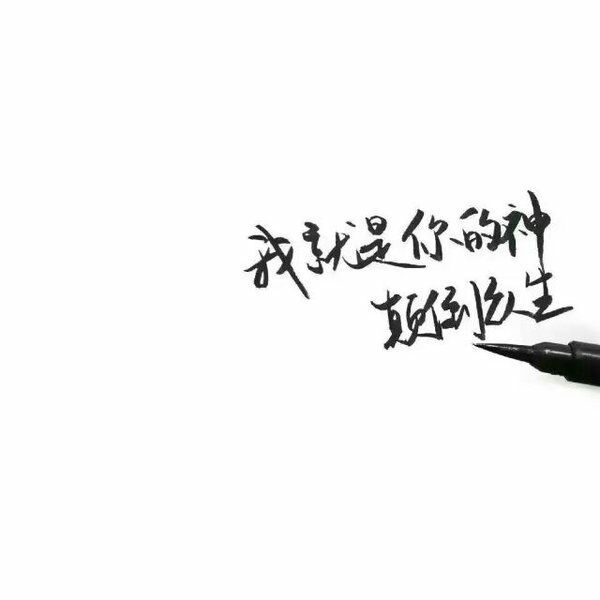 我就是你的神
颠倒众生